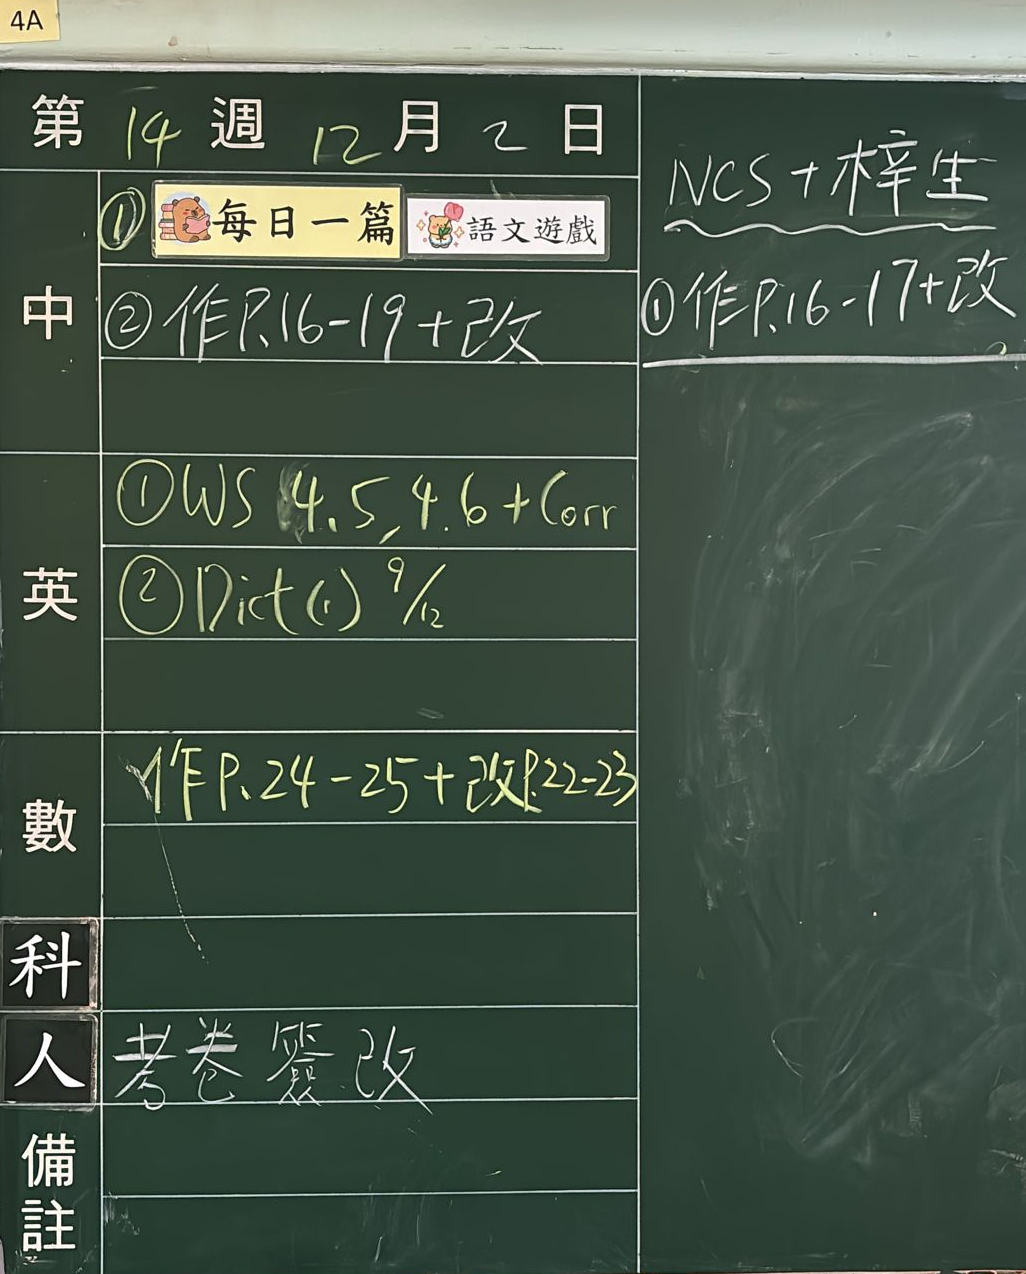 4A
第 14 週 12 月 2 日
中
① 每日一篇 語文遊戲
② 作P.16-19+改
英
① WS 4.5, 4.6 + Corr
② Dict (1) 9/12
數
作P.24-25+改P.22-23
科
人
考卷 簽.改
備註
NCS + 梓生
① 作P.16-17+改